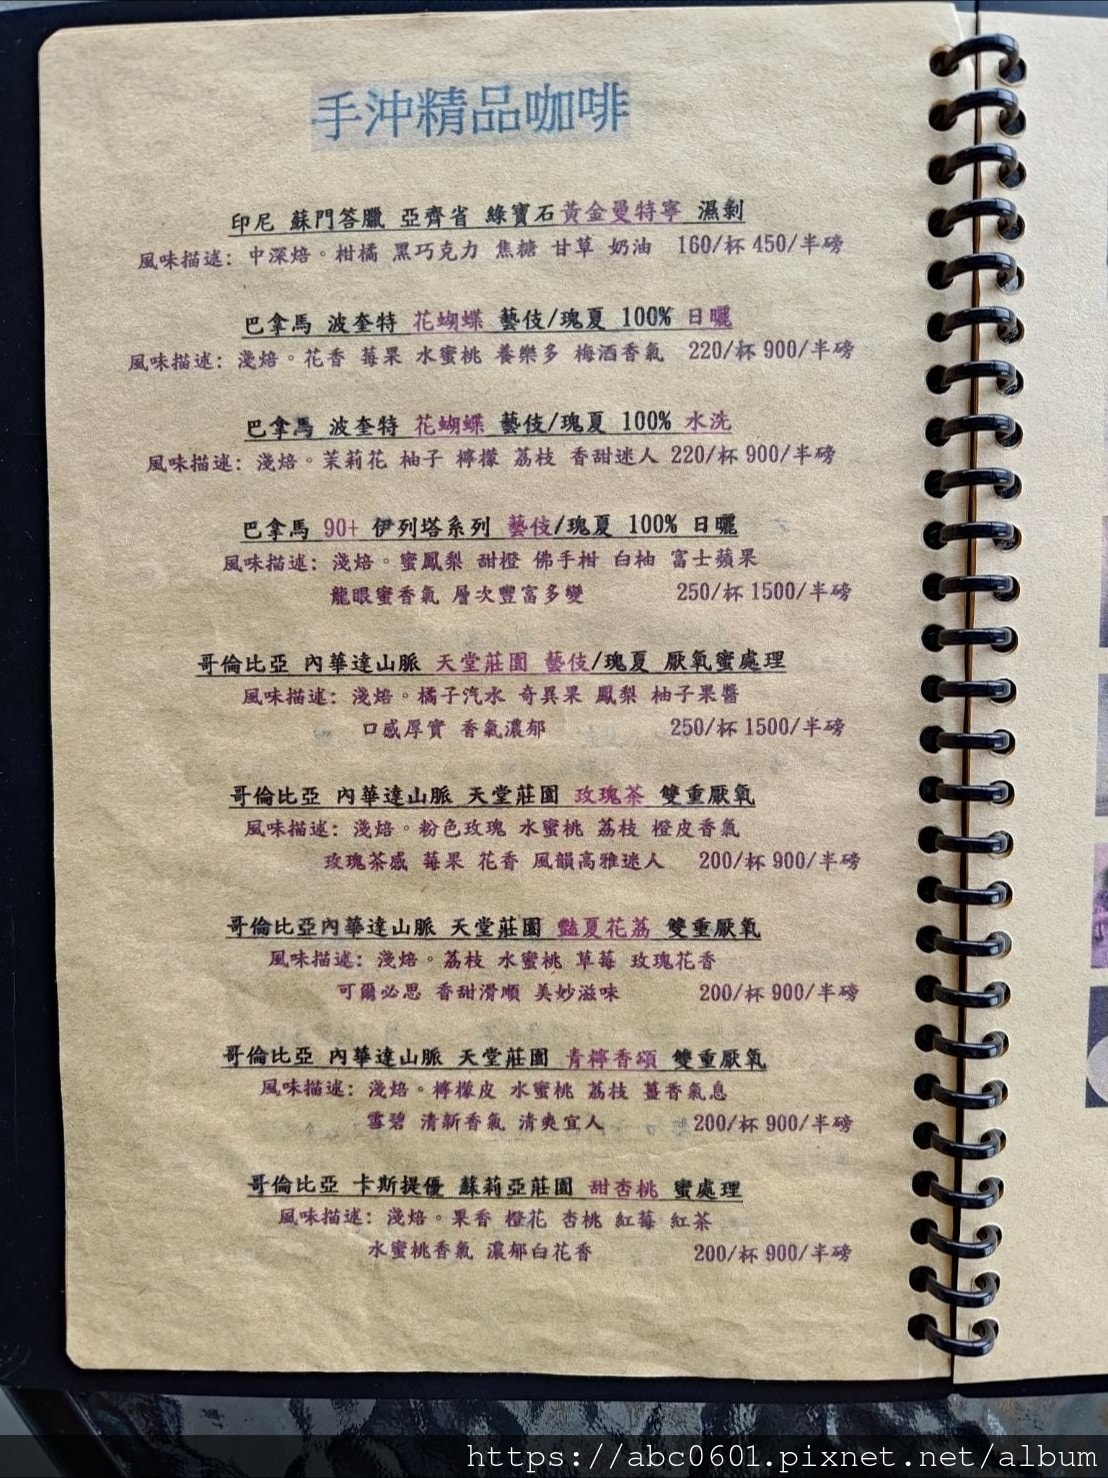 手沖精品咖啡
印尼 蘇門答臘 亞齊省 綠寶石黃金曼特寧 濕剝
風味描述: 中深焙。柑橘 黑巧克力 焦糖 甘草 奶油 160/杯 450/半磅
巴拿馬 波奎特 花蝴蝶 藝伎/瑰夏 100% 日曬
風味描述: 淺焙。花香 莓果 水蜜桃 養樂多 梅酒香氣 220/杯 900/半磅
巴拿馬 波奎特 花蝴蝶 藝伎/瑰夏 100% 水洗
風味描述: 淺焙。茉莉花 柚子 檸檬 荔枝 香甜迷人 220/杯 900/半磅
巴拿馬 90+ 伊列塔系列 藝伎/瑰夏 100% 日曬
風味描述: 淺焙。蜜鳳梨 甜橙 佛手柑 白柚 富士蘋果
龍眼蜜香氣 層次豐富多變 250/杯 1500/半磅
哥倫比亞 內華達山脈 天堂莊園 藝伎/瑰夏 厭氧蜜處理
風味描述: 淺焙。橘子汽水 奇異果 鳳梨 柚子果醬
口感厚實 香氣濃郁 250/杯 1500/半磅
哥倫比亞 內華達山脈 天堂莊園 玫瑰茶 雙重厭氧
風味描述: 淺焙。粉色玫瑰 水蜜桃 荔枝 橙皮香氣
玫瑰茶感 莓果 花香 風韻高雅迷人 200/杯 900/半磅
哥倫比亞內華達山脈 天堂莊園 豔夏花荔 雙重厭氧
風味描述: 淺焙。荔枝 水蜜桃 草莓 玫瑰花香
可爾必思 香甜滑順 美妙滋味 200/杯 900/半磅
哥倫比亞 內華達山脈 天堂莊園 青檸香頌 雙重厭氧
風味描述: 淺焙。檸檬皮 水蜜桃 荔枝 薑香氣息
雪碧 清新香氣 清爽宜人 200/杯 900/半磅
哥倫比亞 卡斯提優 蘇莉亞莊園 甜杏桃 蜜處理
風味描述: 淺焙。果香 橙花 杏桃 紅莓 紅茶
水蜜桃香氣 濃郁白花香 200/杯 900/半磅
https://abc0601.pixnet.net/album